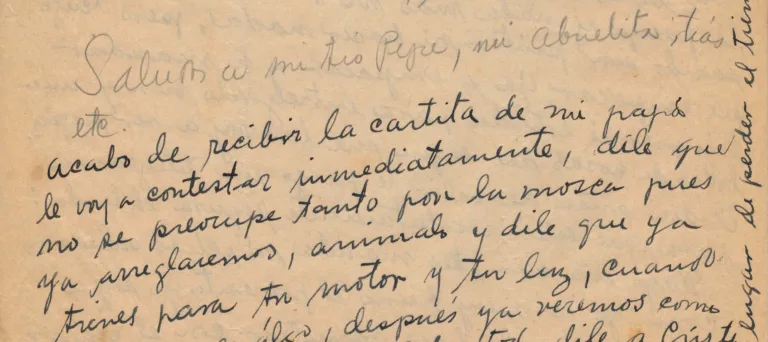 Saludos a mi tío Pepe, mi Abuelita, tías
etc.
acabo de recibir la cartita de mi papá
le voy a contestar inmediatamente, dile que
no se preocupe tanto por la mosca pues
ya arreglaremos, animalo y dile que ya
tienes para tu motor y tu luz, cuando
algo, después ya veremos como
dile a
lugar de perder el tiem